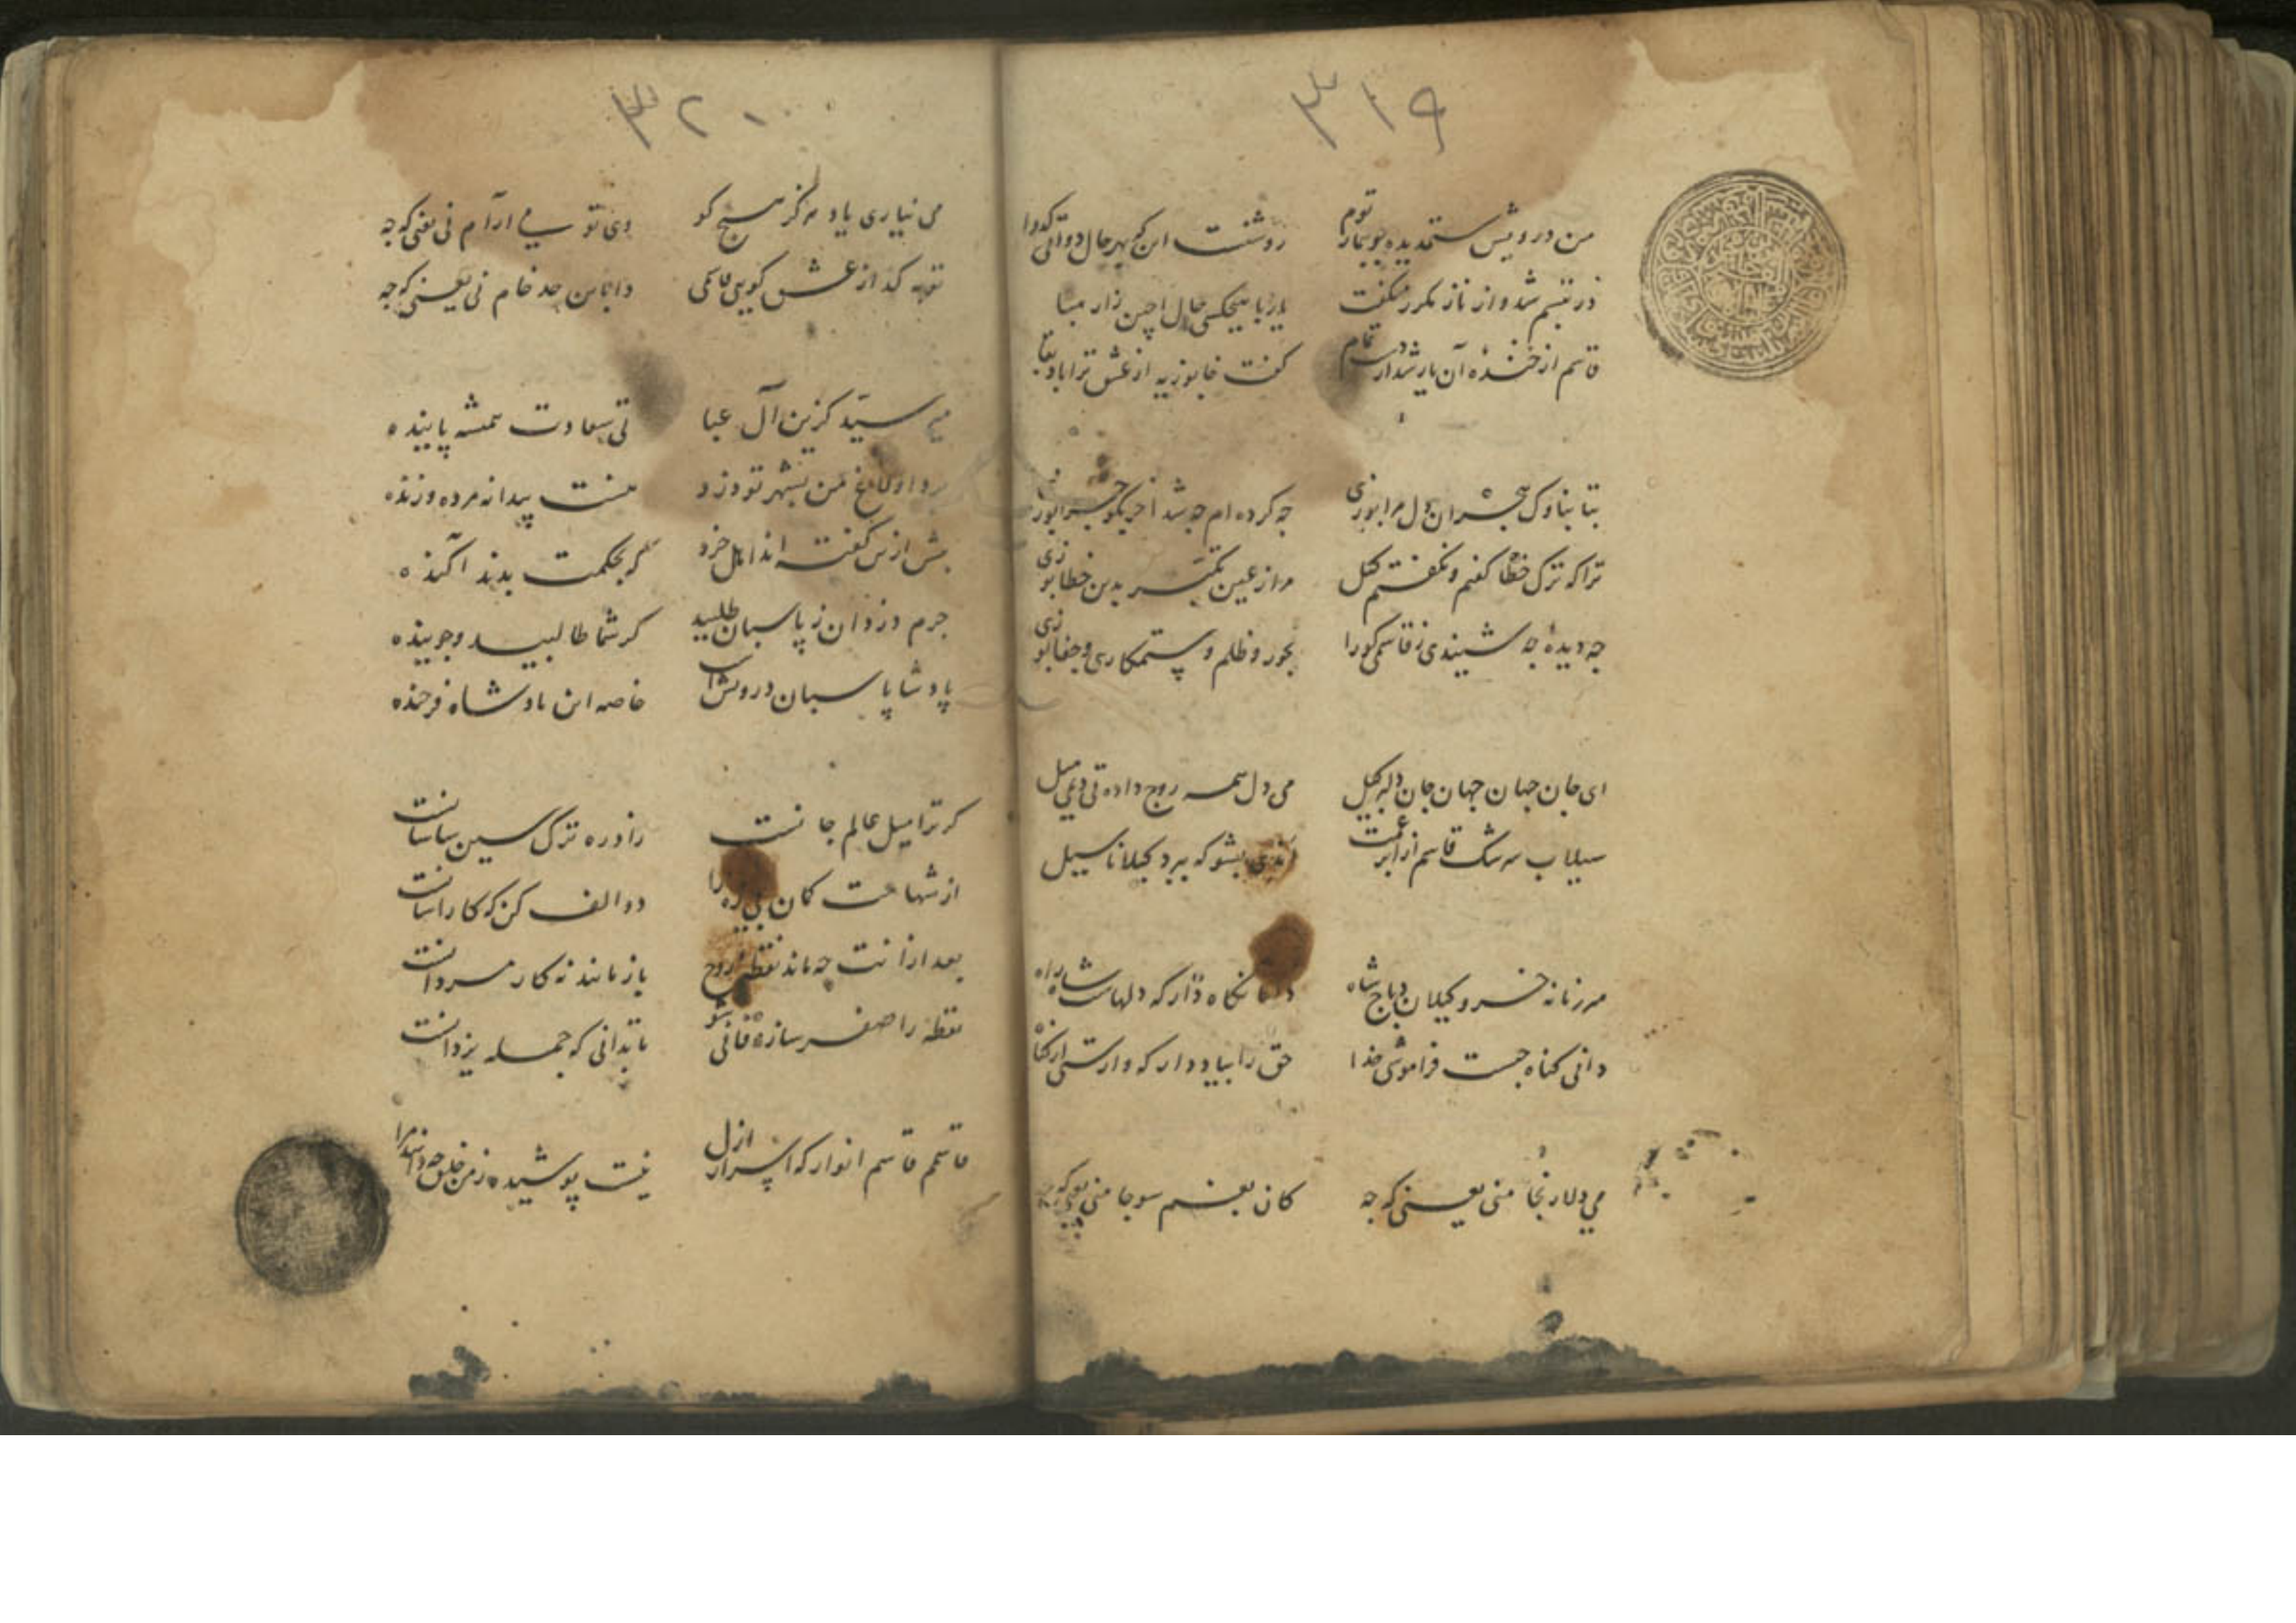 ۳۱۹
من درویش ستمدیده چو بیمار توم
روشنست این که بهر حال دوائی
در تبسم شد و از ناز مکرر میکفت
قاسم از خندهٔ آن یار شد از دست تمام
کفت خابوزیه از عشق ترا
بتا بناوک هجران دل مرا بوزی
چه کرده ام چه شد آخر بکو چرا بوزی
ترا که ترک خطا کفتم و نکفتم کتل
مرا ز عین تکبر بدین خطا بوزی
چه دیدهٔ چه شنیدی ز قاسمی کورا
بجور و ظلم و ستمکاری و جفا بوزی
ای جان جهان جهان جان دلبر کیل
می دل همه روج داده تی دیمی میل
سیلاب سرشک قاسم از ابر غمت
بشو که ببرد کیلانا سیل
مرزنانه خسرو کیلان دباج شاه
دلها نکاه دار که دلهاست شاه راه
دانی کناه چیست فراموشی خدا
حق را بیاد دار که وارستی از کناه
می دلارنجا منی یعنی که چه
کان بغم سوجا منی یعنی که چه
۳۲۰
می نیاری یاد هرکز هیچ کو
وی تو بی آرام نی یعنی که چه
توبه کد از عشق کویی قاسمی
دایما بن حد خام نی یعنی که چه
میر سید کزین آل عبا
تی سعادت همشه پاینده
من بشهر تو دزد
هست پیدا نه مرده و زنده
پیش ازین کفته اند اهل خرد
کر بحکمت بدند آکنده
جرم دزدان ز پاسبان طلبید
کر شما طالبید و جوینده
پادشا پاسبان درویش است
خاصه این پادشاه فرخنده
کر ترا میل عالم جانست
را دره ترک سین سیاسانست
از شهادت کمان
دو الف کن که کار آسانست
بعد از آنت چه ماند نقطهٔ روح
باز ماند نه کار مردانست
نقطه را صفر ساز و فانی شو
تا بدانی که جمله یزدانست
قاسمم قاسم انوار که اسرار ازل
نیست پوشیده ز من خلق چه دانند مرا